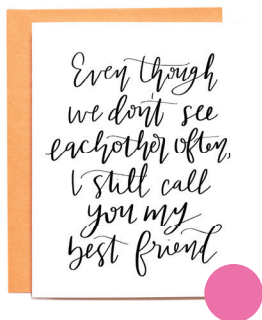 Even though
we don't see
eachother often,
I still call
you my
best friend